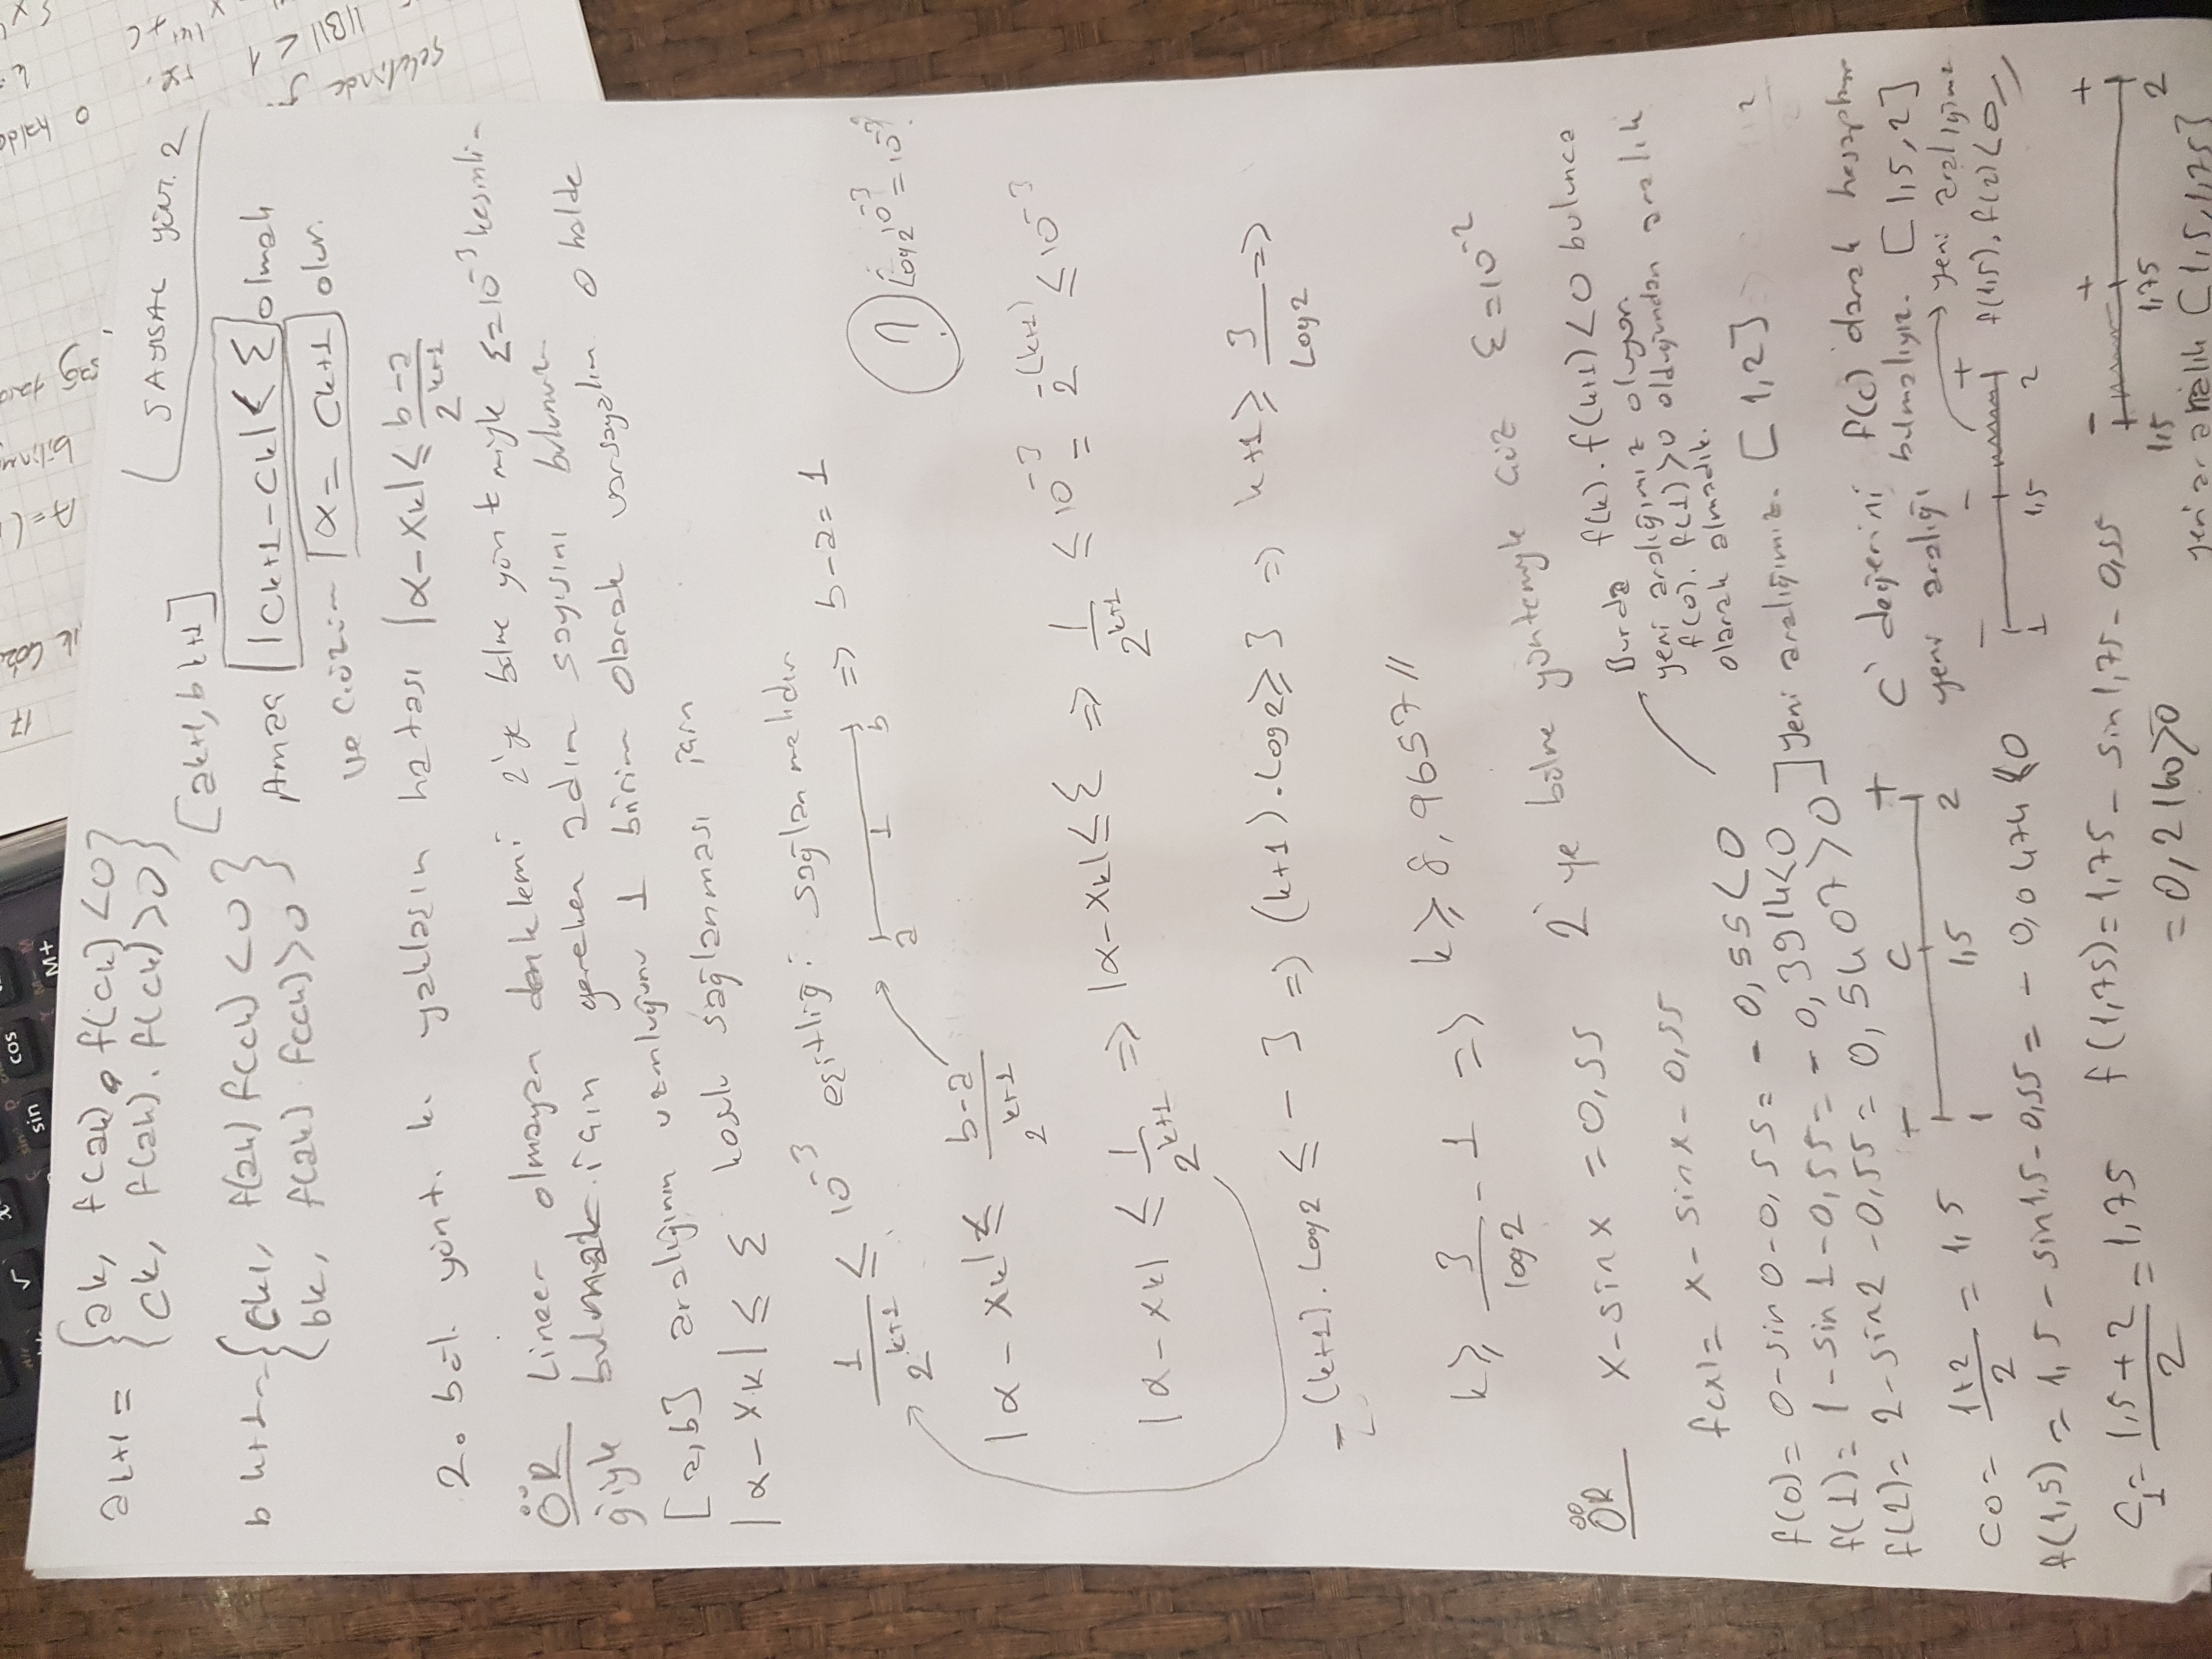 √ sin cos M+
17
SAYISAL yönt. 2
ak+1 = {ak, f(ak) . f(ck) <0}
{ck, f(ak) . f(ck) >0}
[ak+1, bk+1]
b k+1 = {ck, f(ak) f(ck) <0}
{bk, f(ak) f(ck) >0}
Amaç |ck+1 - ck| < Ɛ olmak
ve çözüm α = ck+1 olur.
2. böl. yönt. k. yaklaşım hatası |α - xk| ≤ (b-a)/2^(k+1)
ÖR Lineer olmayan denklemi 2'ye bölme yöntemiyle Ɛ=10^-3 kesinli-
ğiyle bulmak için gereken adım sayısını bulunuz
[a,b] aralığının uzunluğunu 1 birim olarak varsayalım o halde
|α - xk| ≤ Ɛ koşulu sağlanması için
1/2^(k+1) ≤ 10^-3 eşitliği sağlanmalıdır
a 1 b => b-a = 1
? Log2^10^-3 = 10^-3?
|α - xk| ≤ (b-a)/2^(k+1)
|α - xk| ≤ 1/2^(k+1) => |α - xk| ≤ Ɛ => 1/2^(k+1) ≤ 10^-3 = 2^-(k+1) ≤ 10^-3
-(k+1) . Log2 ≤ -3 => (k+1) . Log2 ≥ 3 => k+1 ≥ 3/Log2 =>
k ≥ 3/log2 - 1 => k ≥ 8,9657 //
ÖR x - sinx = 0,55 2'ye bölme yöntemiyle çöz Ɛ=10^-2
f(x) = x - sinx - 0,55
Burda f(k) . f(k+1) <0 bulunca
yeni aralığımız oluyor.
f(0) . f(1) >0 olduğundan aralık
olarak almadık.
f(0) = 0 - sin0 - 0,55 = -0,55 <0
f(1) = 1 - sin1 - 0,55 = -0,3914 <0
f(2) = 2 - sin2 - 0,55 = 0,5407 >0
] yeni aralığımız. [1,2]
- c +
1 1,5 2
c değerini f(c) olarak hesaplayıp
yeni aralığı bulmalıyız. [1,5,2]
c0 = (1+2)/2 = 1,5
- - + yeni aralığımız
1 1,5 2 f(1,5) . f(2) <0 //
f(1,5) = 1,5 - sin1,5 - 0,55 = -0,0474 <0
c1 = (1,5+2)/2 = 1,75 f(1,75) = 1,75 - sin1,75 - 0,55
= 0,2160 >0
- + +
1,5 1,75 2
yeni aralık [1,5,1,75]